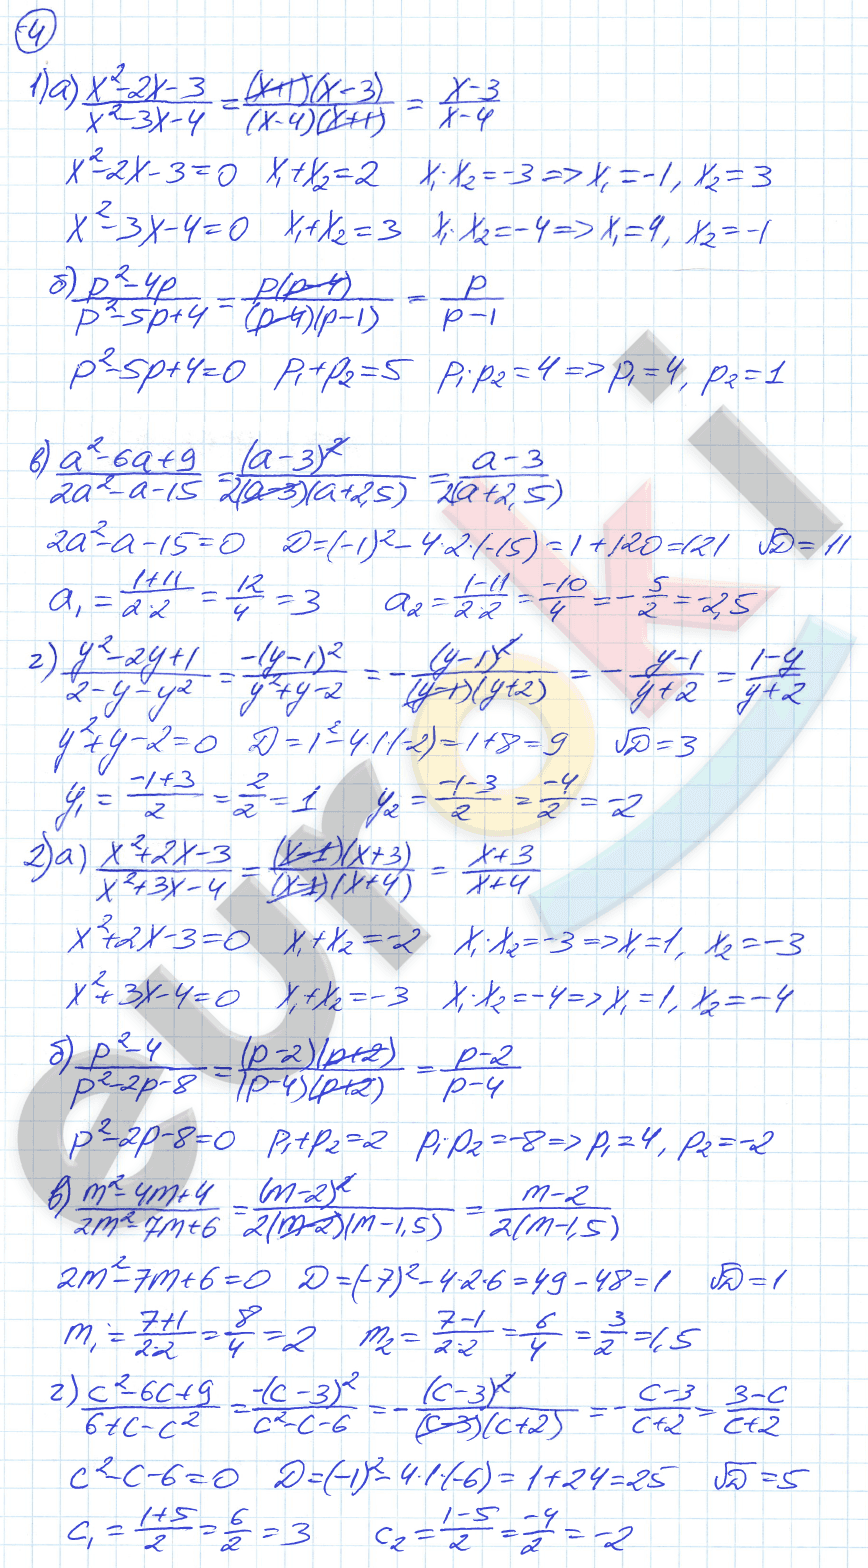 -4
1) а) (x²-2x-3)/(x²-3x-4) = ((x+1)(x-3))/((x-4)(x+1)) = (x-3)/(x-4)
x²-2x-3=0 x₁+x₂=2 x₁·x₂=-3=>x₁=-1, x₂=3
x²-3x-4=0 x₁+x₂=3 x₁·x₂=-4=>x₁=4, x₂=-1
б) (p²-4p)/(p²-5p+4) = (p(p-4))/((p-4)(p-1)) = p/(p-1)
p²-5p+4=0 p₁+p₂=5 p₁·p₂=4=>p₁=4, p₂=1
в) (a²-6a+9)/(2a²-a-15) = (a-3)²/(2(a-3)(a+2,5)) = (a-3)/(2(a+2,5))
2a²-a-15=0 D=(-1)²-4·2·(-15)=1+120=121 √D=11
a₁=(1+11)/(2·2)=12/4=3 a₂=(1-11)/(2·2)=-10/4=-5/2=-2,5
г) (y²-2y+1)/(2-y-y²) = -(y-1)²/(y²+y-2) = -(y-1)²/((y-1)(y+2)) = -(y-1)/(y+2) = (1-y)/(y+2)
y²+y-2=0 D=1²-4·1·(-2)=1+8=9 √D=3
y₁=(-1+3)/2=2/2=1 y₂=(-1-3)/2=-4/2=-2
2) а) (x²+2x-3)/(x²+3x-4) = ((x-1)(x+3))/((x-1)(x+4)) = (x+3)/(x+4)
x²+2x-3=0 x₁+x₂=-2 x₁·x₂=-3=>x₁=1, x₂=-3
x²+3x-4=0 x₁+x₂=-3 x₁·x₂=-4=>x₁=1, x₂=-4
б) (p²-4)/(p²-2p-8) = ((p-2)(p+2))/((p-4)(p+2)) = (p-2)/(p-4)
p²-2p-8=0 p₁+p₂=2 p₁·p₂=-8=>p₁=4, p₂=-2
в) (m²-4m+4)/(2m²-7m+6) = (m-2)²/(2(m-2)(m-1,5)) = (m-2)/(2(m-1,5))
2m²-7m+6=0 D=(-7)²-4·2·6=49-48=1 √D=1
m₁=(7+1)/(2·2)=8/4=2 m₂=(7-1)/(2·2)=6/4=3/2=1,5
г) (c²-6c+9)/(6+c-c²) = -(c-3)²/(c²-c-6) = -(c-3)²/((c-3)(c+2)) = -(c-3)/(c+2) = (3-c)/(c+2)
c²-c-6=0 D=(-1)²-4·1·(-6)=1+24=25 √D=5
c₁=(1+5)/2=6/2=3 c₂=(1-5)/2=-4/2=-2
euroki